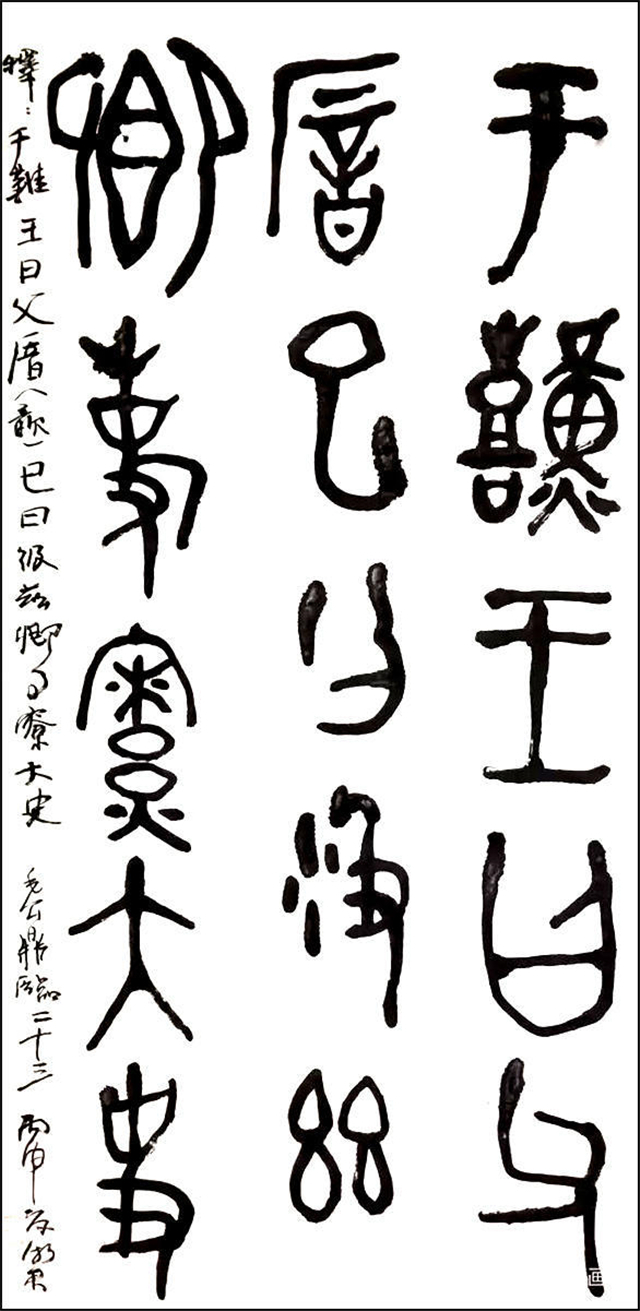 于囏王曰父
厝巳曰彶茲
卿事寮大史
釋：于難王曰父厝巳曰彶茲卿事寮大史 毛公鼎臨二十三 丙申
画